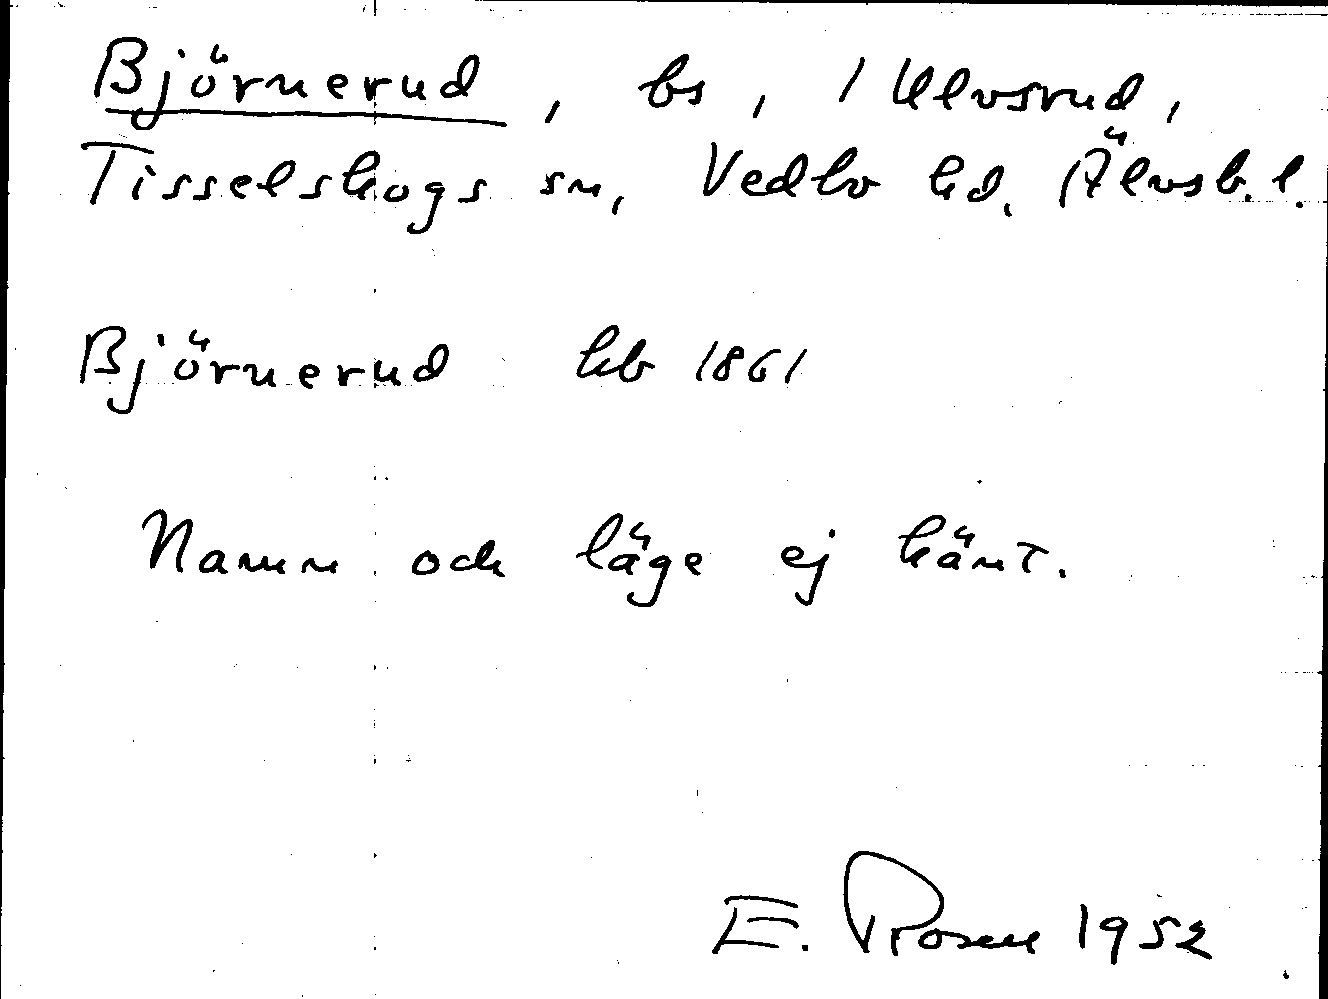 Björnerud, bs, 1 Ulvsrud,
Tisselskogs sn, Vedbo hd. Älvsb. l.
Björnerud hb 1861
Namn och läge ej känt.
E. Rosen 1952